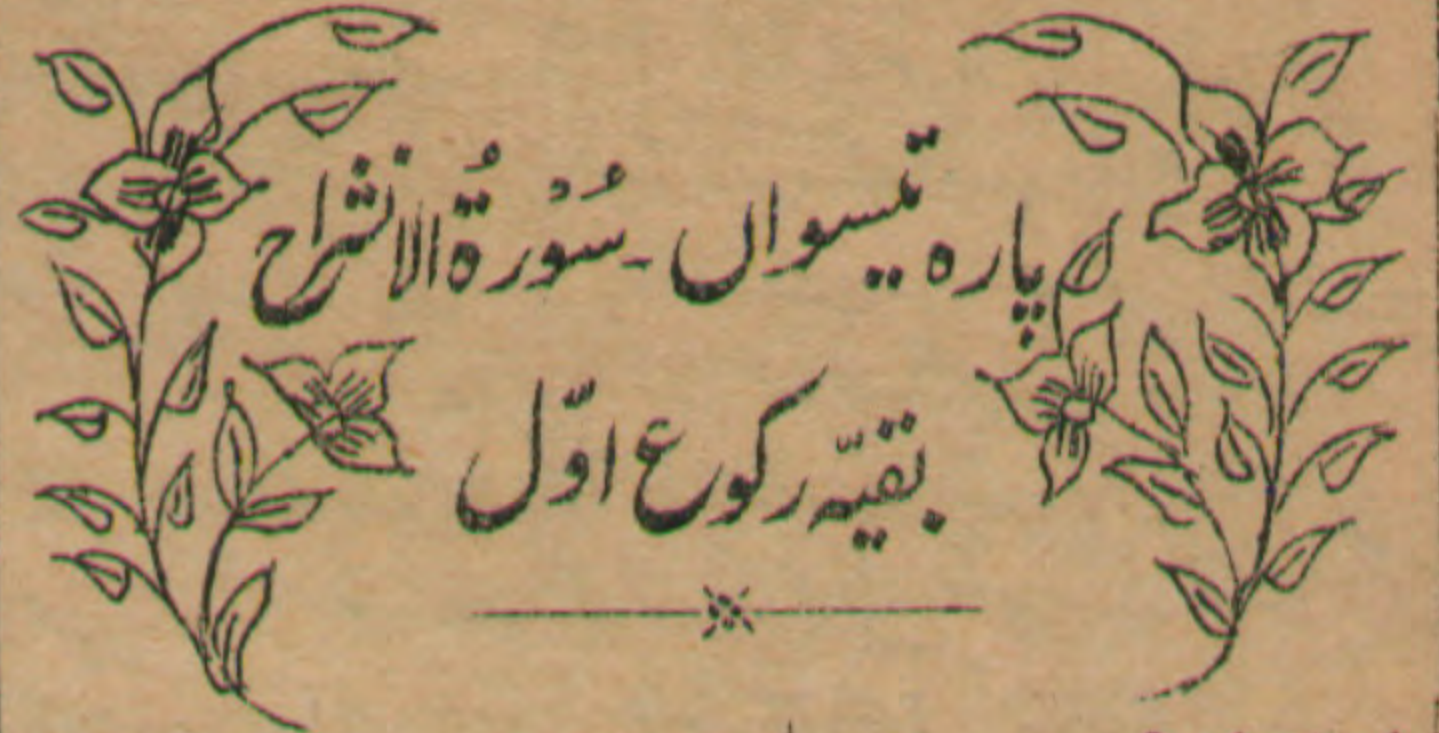 پارہ تیسواں ۔ سُوْرۃُ الانشراح
بقیّہ رکوع اوّل